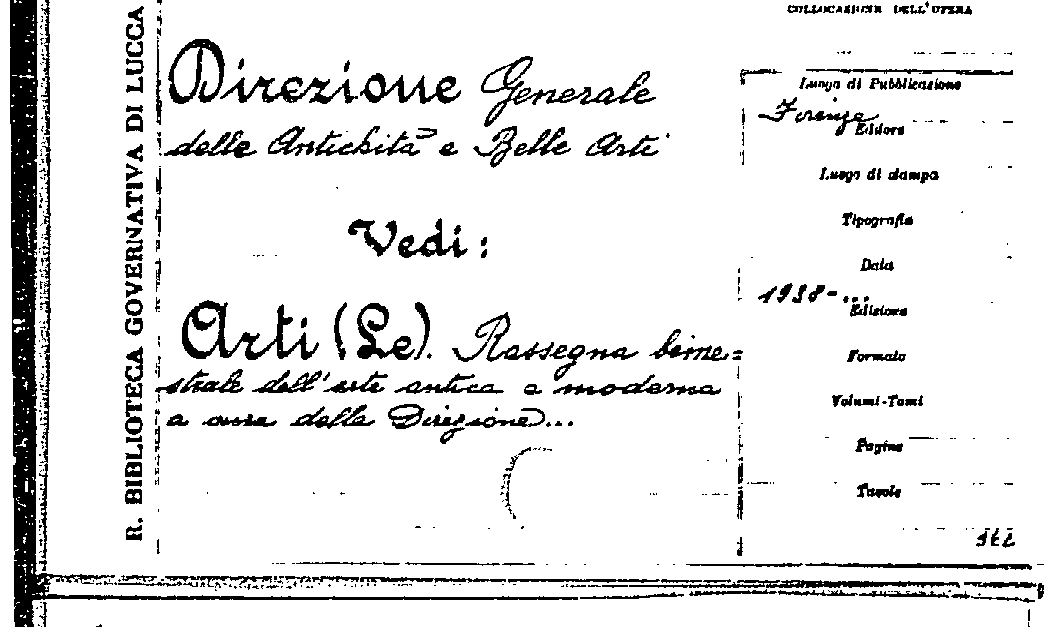 COLLOCAZIONE DELL'OPERA
R. BIBLIOTECA GOVERNATIVA DI LUCCA
Direzione Generale
delle Antichità e Belle Arti
Vedi:
Arti (Le). Rassegna bime=
strale dell'arte antica e moderna
a cura della Direzione...
Luogo di Pubblicazione
Firenze
Editore
Luogo di stampa
Tipografia
Data
1938-...
Edizione
Formato
Volumi-Tomi
Pagine
Tavole